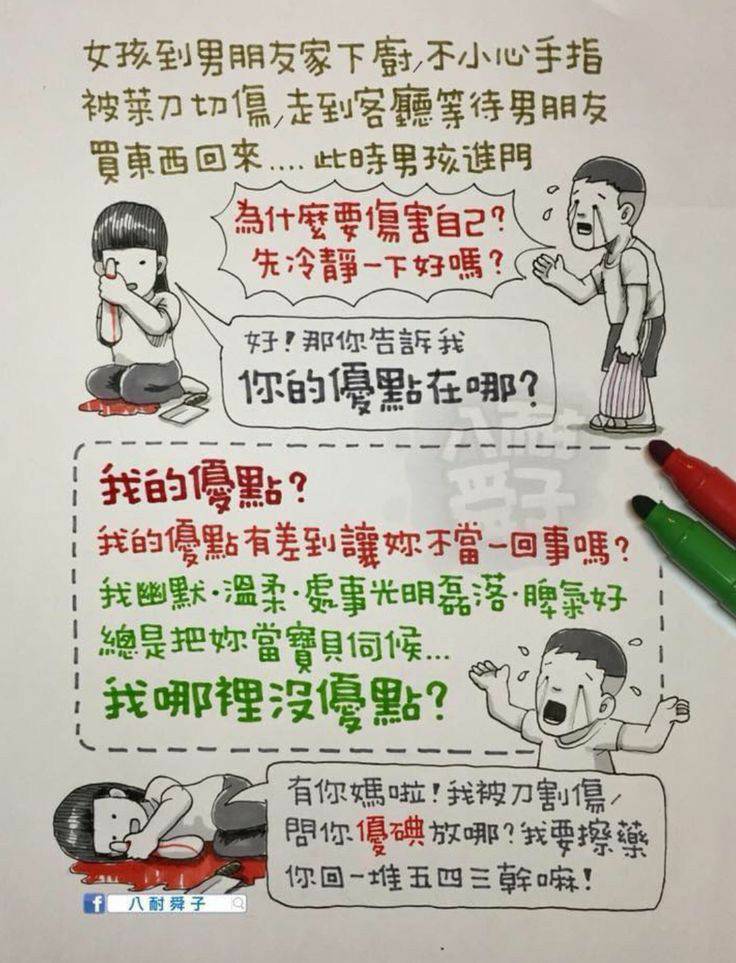 女孩到男朋友家下廚,不小心手指
被菜刀切傷,走到客廳等待男朋友
買東西回來.... 此時男孩進門
為什麼要傷害自己?
先冷靜一下好嗎?
好!那你告訴我
你的優點在哪?
八耐
舜子
我的優點?
我的優點有差到讓妳不當一回事嗎?
我幽默·溫柔·處事光明磊落·脾氣好
總是把妳當寶貝伺候...
我哪裡沒優點?
有你媽啦!我被刀割傷,
問你優碘放哪?我要擦藥
你回一堆五四三幹嘛!
f 八耐舜子